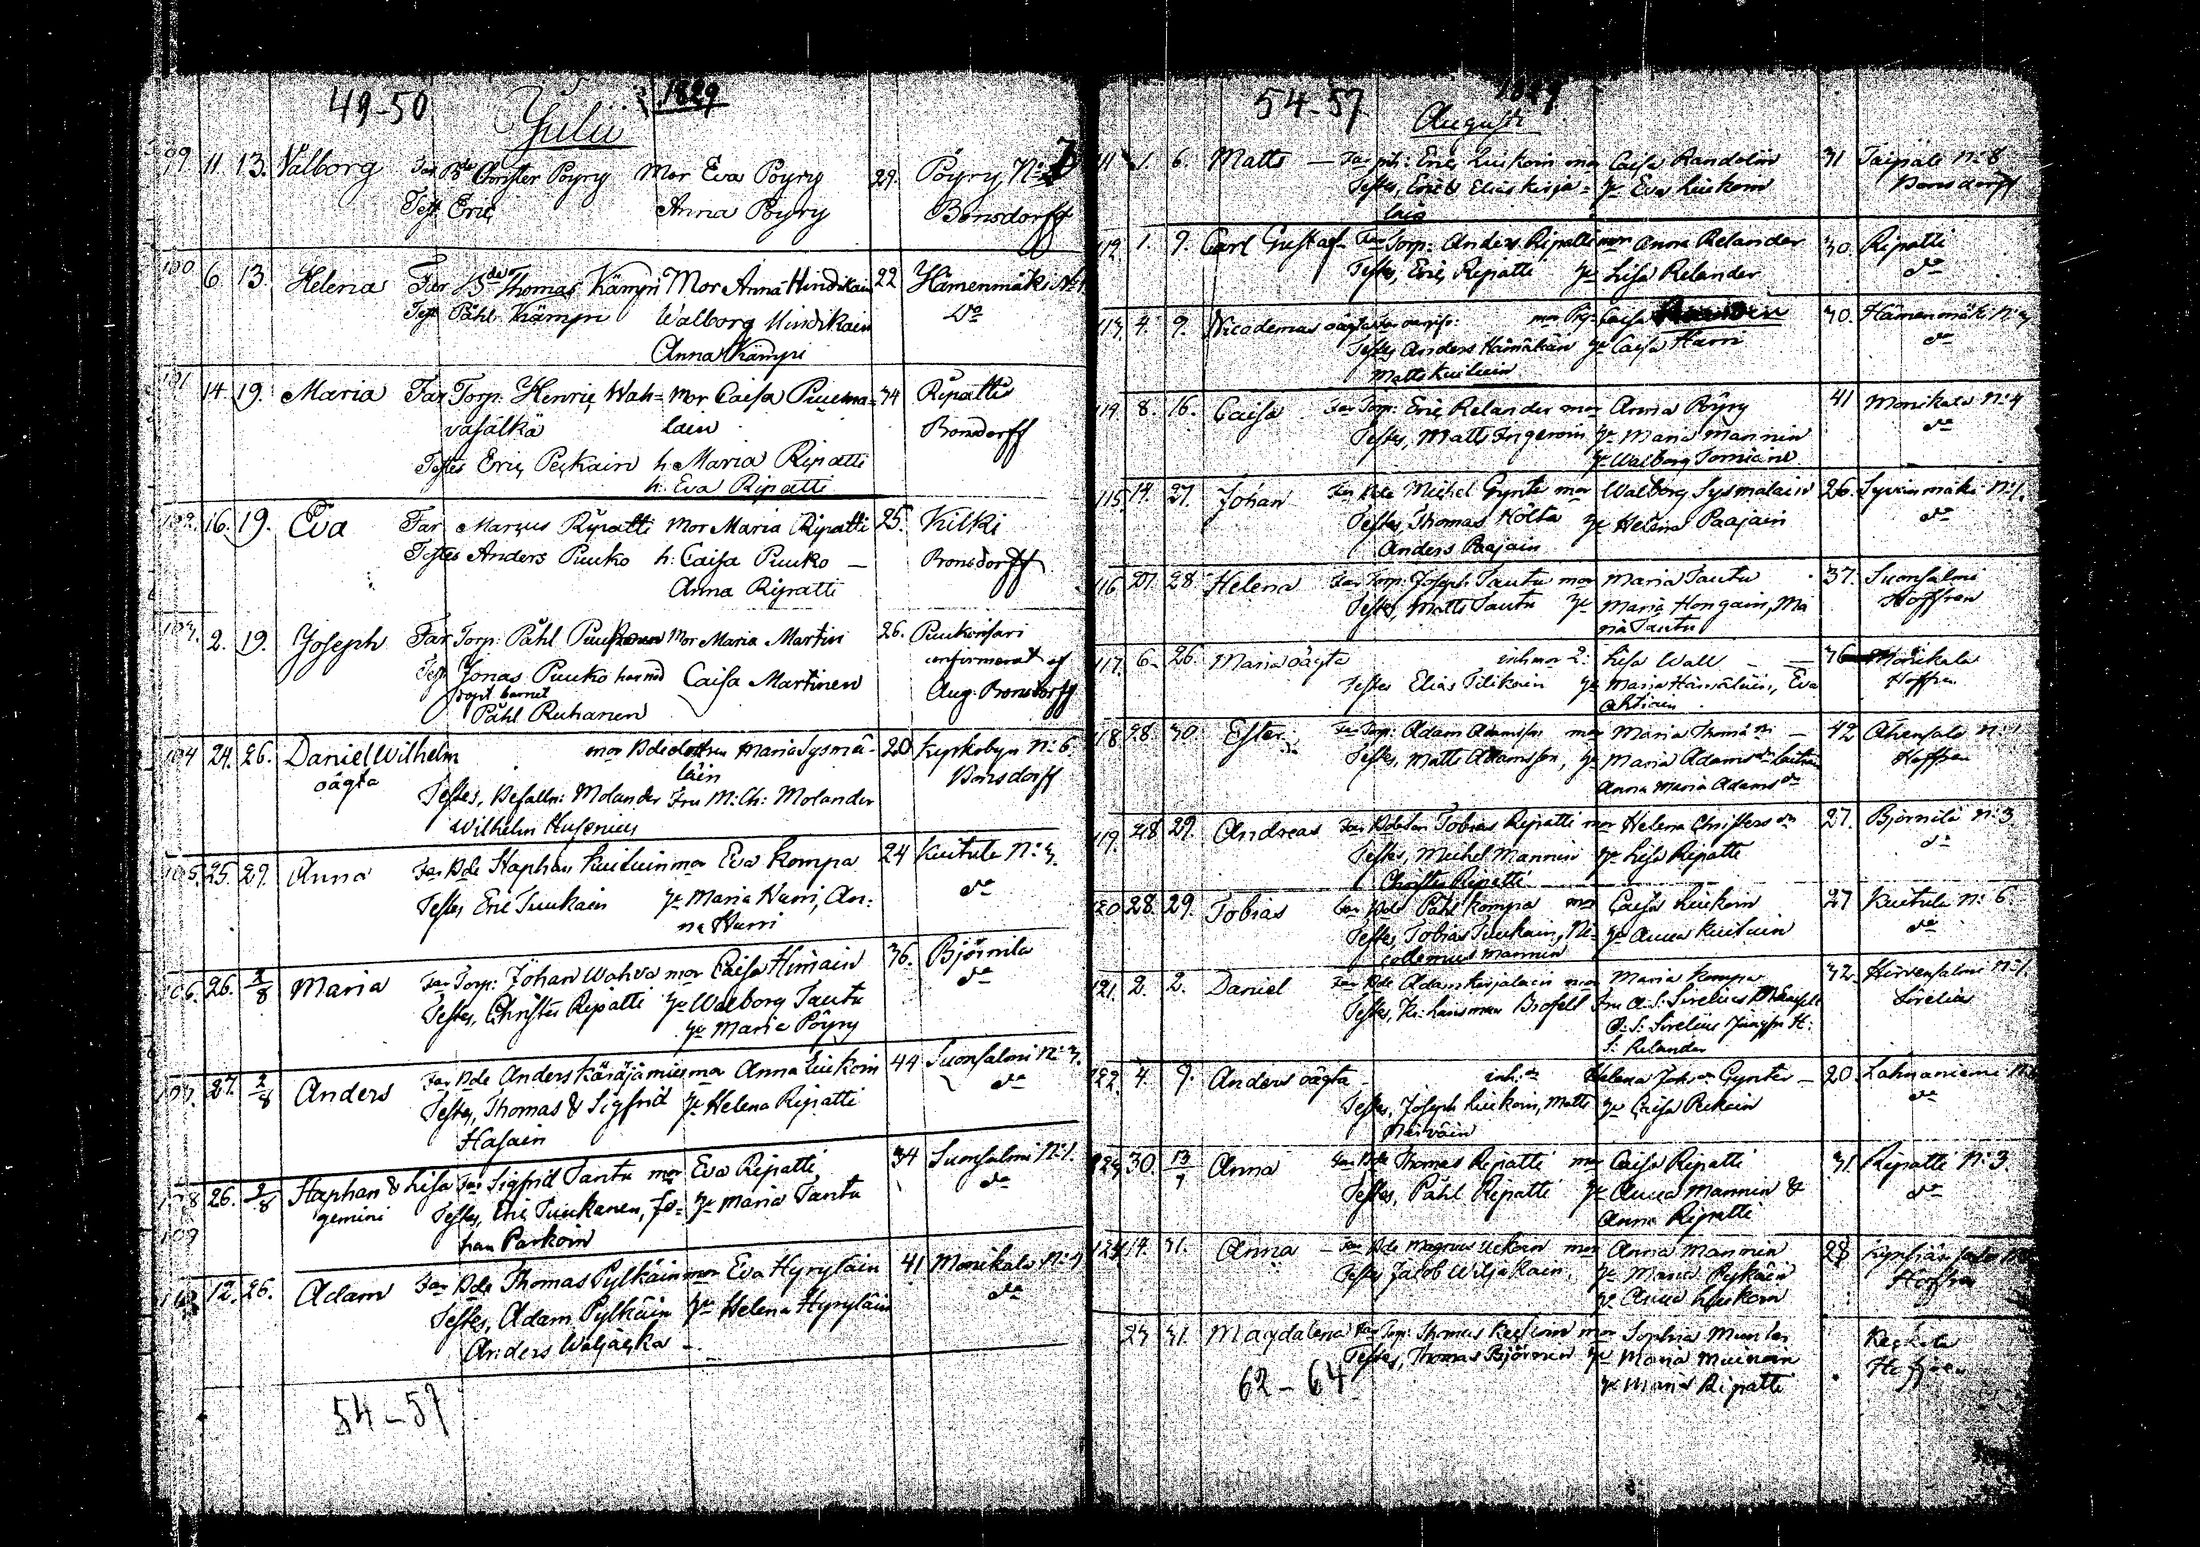 49-50 Julii 1829
99. 11. 13. Valborg Far Bde Christer Pöyry Mor Eva Pöyry 29. Pöyry, No: 7
Test. Eric Anna Pöyry Bonsdorff
100 6 13. Helena Far Bde Thomas Kämpi Mor Anna Hindikain 22 Hämenmäki No 1
Test Påhl Kämpi Walborg Hindikain Do
Anna Kämpi
101 14 19. Maria Far Torp: Henric Wah= Mor Caisa Piuema= 34 Ripatti
vasälkä lain Bonsdorff
Testes Eric Peckain h. Maria Ripatti
h: Eva Ripatti
102. 16. 19. Eva Far Marcus Ripatti Mor Maria Ripatti 25. Kilki
Testes Anders Puuko h: Caisa Puuko — Bonsdorff
Anna Ripatti
103. 2. 19. Joseph Far Torp: Påhl Mor Maria Martin 26. Puukonsari
Test Jonas Puuko Caisa Martinen confirmerat af
döpt barnet Aug. Bonsdorff
Påhl Ruhanen
104 24. 26. Daniel Wilhelm mor Bdedottren Maria Sysmä- 20 Kyrkobyn No: 6
oägta läin Bonsdorff
Testes, Befalln: Molander Fru M: Ch: Molander
Wilhelm Husenius
105. 25. 29. Anna Far Bde Staphan Kuituin mor Eva Kompa 24 Kuitula No: 3.
Testes Eric Tuukain Ja Maria Harri, An: do
na Harri
106. 26. 2/8 Maria Far Torp: Johan Wahva mor Caisa Himain 36. Björnila
Testes, Christer Ripatti Ja Walborg Tautu do
Ja Maria Pöyry
107. 27. 2/8 Anders Far Bde Anders Käräjämies mor Anna Liukoin 44 Suonsalmi No: 3.
Testes, Thomas & Sigfrid Ja Helena Ripatti do
Hasain
108 26. 2/8 Staphan & Lisa Far Sigfrid Tautu mor Eva Ripatti 34 Suonsalmi No: 1.
109 gemini Testes, Eric Tuukanen, Jo= Ja Maria Tautu do
han Parkoin
12. 26. Adam Far Bde Thomas Pylkäin mor Eva Hyryläin 41 Monikala No: 4
Testes, Adam Pylkäin Ja Helena Hyryläin do
Anders Waljacka
54-57
54-57 1829
Augusti
111 1. 6. Matts — Far Eric Liukoin mor Caisa Randelin 31 Taipale No: 8
Testes, Eric & Elias Kirja= Ja Eva Liukoin Bonsdorff
lain
112. 1. 9. Carl Gustaf Far Torp: Anders Ripatti mor Anna Relander 30. Ripatti
Testes, Eric Ripatti Ja Lisa Relander do
113. 4. 9. Nicodemus oägta mor Pig: Caisa 30. Hämenmäki No: 3
Testes Anders Hämäläin Ja Caisa Harri do
Matts Kuituin
114. 8. 16. Caisa Far Torp: Eric Relander mor Anna Pöyry 41 Monikala No: 4
Testes, Matts Ingeroin Ja Maria Mannin do
Ja Walborg Torniain
115. 14. 27. Johan Far Bde Michel Gynte mor Walborg Sysmäläin 26. Syvinmäki No: 1.
Testes, Thomas Hölta Ja Helena Paajain do
Anders Paajain
116 27. 28 Helena Far Torp: Joseph Tautu mor Maria Tautu 37. Suonsalmi
Testes, Matts Tautu Ja Maria Hongain, Ma Hoffren
ria Tautu
117. 6. 26. Maria oägta inh mor Lisa Wall 36 Monikala
Testes Elias Tilikain Ja Maria Hämäläin, Eva Hoffren
Ahtiain
118 28 30. Ester Far Torp: Adam Adamsson mor Maria Thomæ dr — 42 Ahensalo No: 1
Testes, Matts Adamsson, Ja Maria Adams dr Hoffren
Anna Maria Adams dr
119. 28 29. Andreas Far Tobias Ripatti mor Helena Christers dr 27. Björnilä No: 3
Testes, Michel Mannin Ja Lisa Ripatti do
Christer Ripatti
120 28. 29. Tobias Far Bde Påhl Kompa mor Caisa Liukoin 27 Kuitula No: 6
Testes, Tobias Tuukain, Ni- Ja Anna Kuituin do
codemus Mannin
121. 2. 2. Daniel Far Bde Adam Kirjalain mor Maria Kompa 32. Hirvensalmi No: 1.
Testes, Kr: Länsman Brofelt Fru A: S: Sirelius Sirelius
A: S: Sirelius Jungfr H:
S: Relander
122. 4. 9. Anders oägta inh: Helena Johs dr Gynter — 20. Lahnaniemi
Testes, Joseph Liukoin, Matts Ja Caisa Pekain do
Närväin
123 30. 13/7 Anna Far Bde Thomas Ripatti mor Caisa Ripatti 31 Ripatti No: 3.
Testes, Påhl Ripatti Ja Anna Mannin & do
Anna Ripatti
124 14. 31. Anna — Far Bde Magnus mor Anna Mannin 28
Testes Jacob Wiljakain, Ja Maria Hoffren
Ja Anna Liukoin
23 31. Magdalena Far Torp: Thomas mor Sophia
Testes, Thomas Björnin Ja Maria
Ja Maria Ripatti
62-64